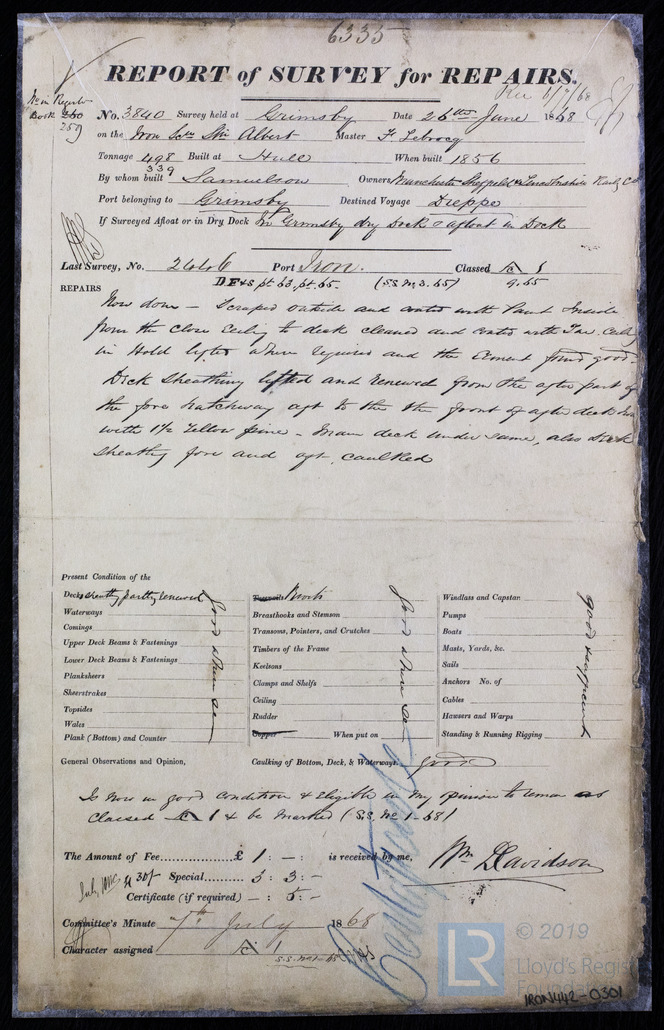 6335
REPORT of SURVEY for REPAIRS.
Rec 6/7/68
No. in Register
Book 260
259
No. 3840 Survey held at Grimsby Date 26th June 1868
on the Iron Scw Str Albert Master F. Lebrocq
Tonnage 498 Built at Hull When built 1856
339
By whom built Samuelson Owners Manchester Sheffield & Lincolnshire Railg Co
Port belonging to Grimsby Destined Voyage Dieppe
If Surveyed Afloat or in Dry Dock In Grimsby dry Dock & afloat in Dock
Last Survey, No. 26446 Port Iron. Classed A 1
DE&S pt. 63, pt. 65. (S.S. No. 3. 65) 9.65
REPAIRS
Now done – Scraped outside and coated with Paint Inside
from the close Ceiling to deck cleaned and coated with Tar. Ceilg
in Hold lifted where required and the Cement found good.
Deck Sheathing lifted and renewed from the after part of
the fore hatchway aft to the the front of after deck
with 1½ Yellow pine – Main deck under same, also Deck
sheathing fore and aft, caulked
Present Condition of the
Decks sheathg partly renewed
Waterways
Comings
Upper Deck Beams & Fastenings
Lower Deck Beams & Fastenings
Planksheers
Sheerstrakes
Topsides
Wales
Plank (Bottom) and Counter
good where seen
Treenails Rivets
Breasthooks and Stemson
Transoms, Pointers, and Crutches
Timbers of the Frame
Keelsons
Clamps and Shelfs
Ceiling
Rudder
Copper When put on
good where seen
Windlass and Capstan
Pumps
Boats
Masts, Yards, &c.
Sails
Anchors No. of
Cables
Hawsers and Warps
Standing & Running Rigging
good & efficient
General Observations and Opinion, Caulking of Bottom, Deck, & Waterways good
Is now in good condition & Eligible in my opinion to remain as
Classed A 1 & be marked (S.S. No 1 – 68)
The Amount of Fee £ 1 : – : is received by me, Wm Davidson
Special 3 : 3 : –
Certificate (if required) – : 5 : –
Committee's Minute 7th July 1868
Character assigned A 1
S.S. No 1 – 65
© 2019
LR
Lloyd's Regis
Foundation
IRON442-0301